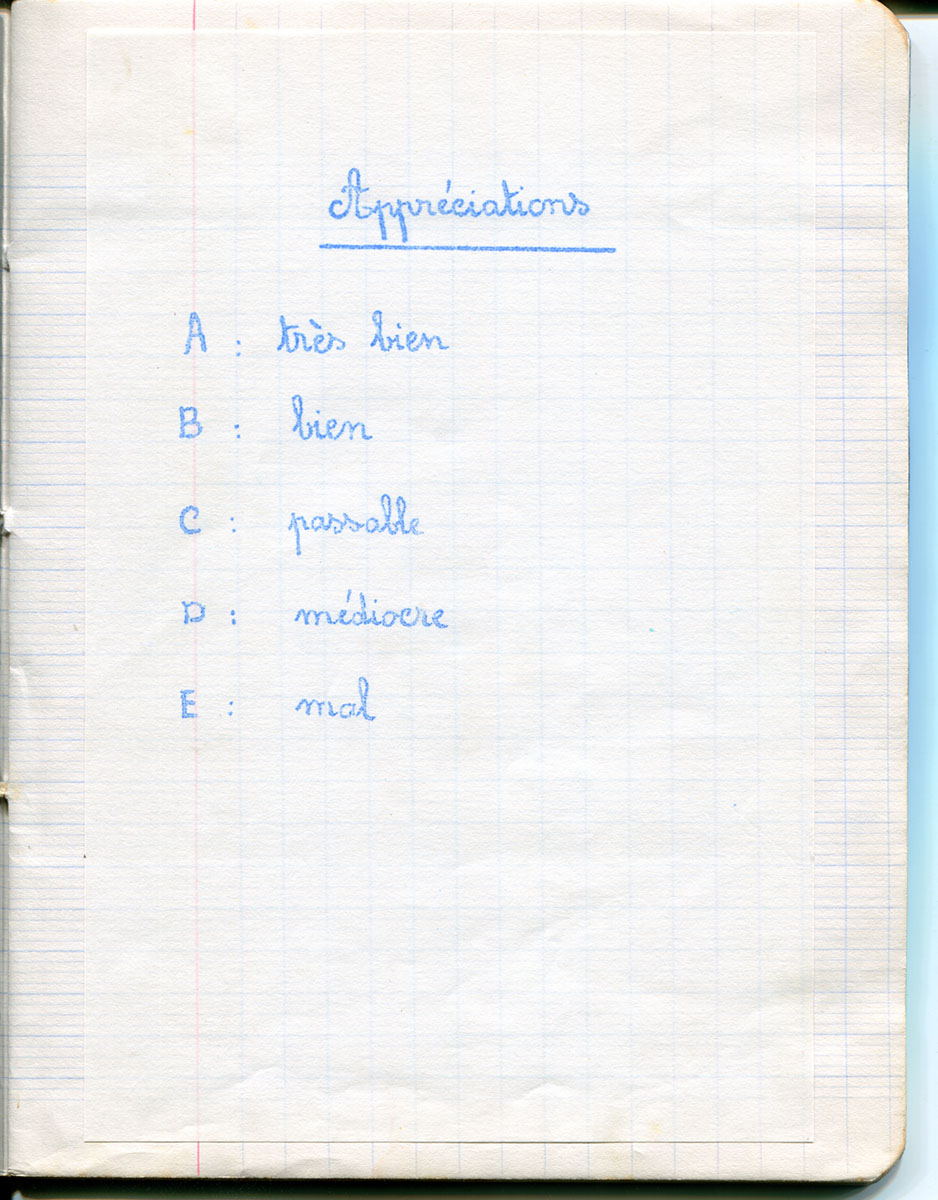 Appréciations
A : très bien
B : bien
C : passable
D : médiocre
E : mal